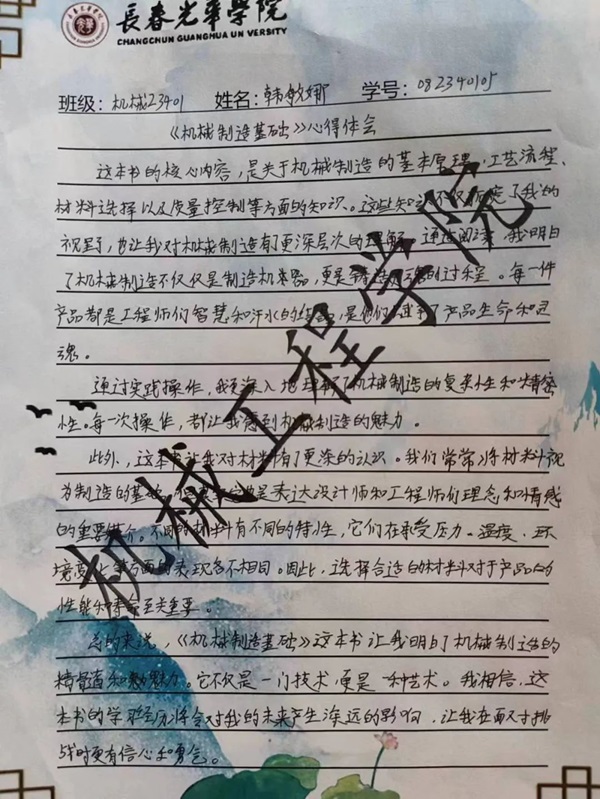 長春光華學院
CHANGCHUN GUANGHUA UN VERSITY
班级：机械23401 姓名：韩敏娜 学号：082340105
《机械制造基础》心得体会
这本书的核心内容，是关于机械制造的基本原理、工艺流程、
材料选择以及质量控制等方面的知识。这些知识不仅拓宽了我的
视野，也让我对机械制造有了更深层次的理解。通过阅读，我明白
了机械制造不仅仅是制造机器，更是的过程。每一件
产品都是工程师们智慧和汗水的结晶，是他们赋予了产品生命和灵
魂。
通过实践操作，我更深入地理解了机械制造的复杂性和精密
性。每一次操作，都让我感到机械制造的魅力。
此外，这本书让我对材料有了更深的认识。我们常常将材料视
为制造的基础，但其实它也是表达设计师和工程师们理念和情感
的重要媒介。不同的材料有不同的特性，它们在承受压力、温度、环
境变化等方面的表现各不相同。因此，选择合适的材料对于产品的
性能和寿命至关重要。
总的来说，《机械制造基础》这本书让我明白了机械制造的
精髓和魅力。它不仅是一门技术，更是一种艺术。我相信，这
本书的学习经历将会对我的未来产生深远的影响，让我在面对挑
战时更有信心和勇气。
机械工程学院